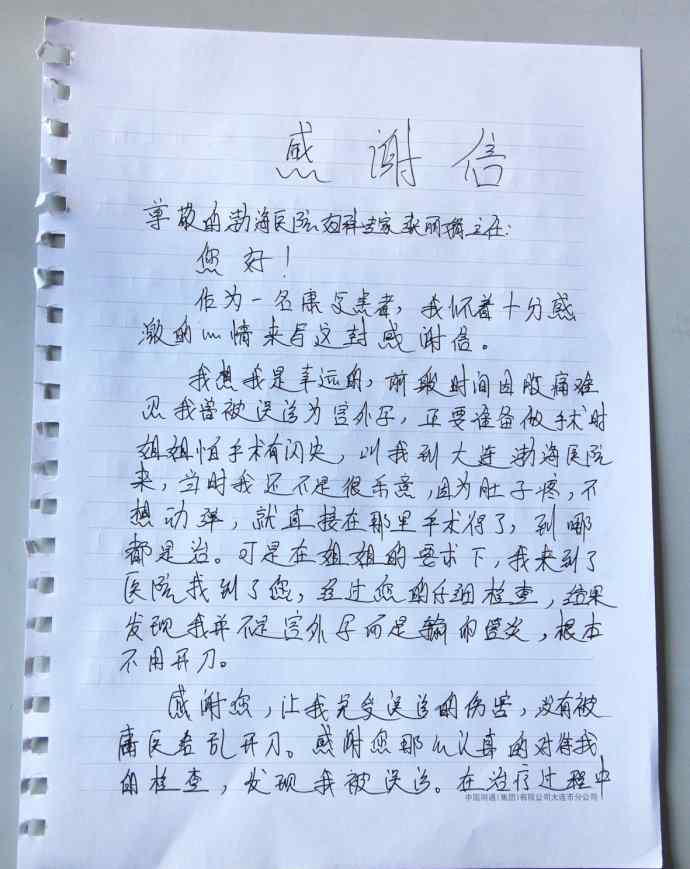 感谢信
尊敬的渤海医院妇科专家张丽梅主任：
您好！
作为一名康复患者，我怀着十分感
激的心情来写这封感谢信。
我想我是幸运的，前段时间因腹痛难
忍我曾被误诊为宫外孕，正要准备做手术时
姐姐怕手术有闪失，叫我到大连渤海医院
来，当时我还不是很乐意，因为肚子疼，不
想动弹，就直接在那里手术得了，到哪
都是治。可是在姐姐的要求下，我来到了
医院找到了您，经过您的仔细检查，结果
发现我并不是宫外孕而是输卵管炎，根本
不用开刀。
感谢您，让我免受误诊的伤害，没有被
庸医给乱开刀。感谢您那么认真的对待我
的检查，发现我被误诊。在治疗过程中
中国网通(集团)有限公司大连市分公司